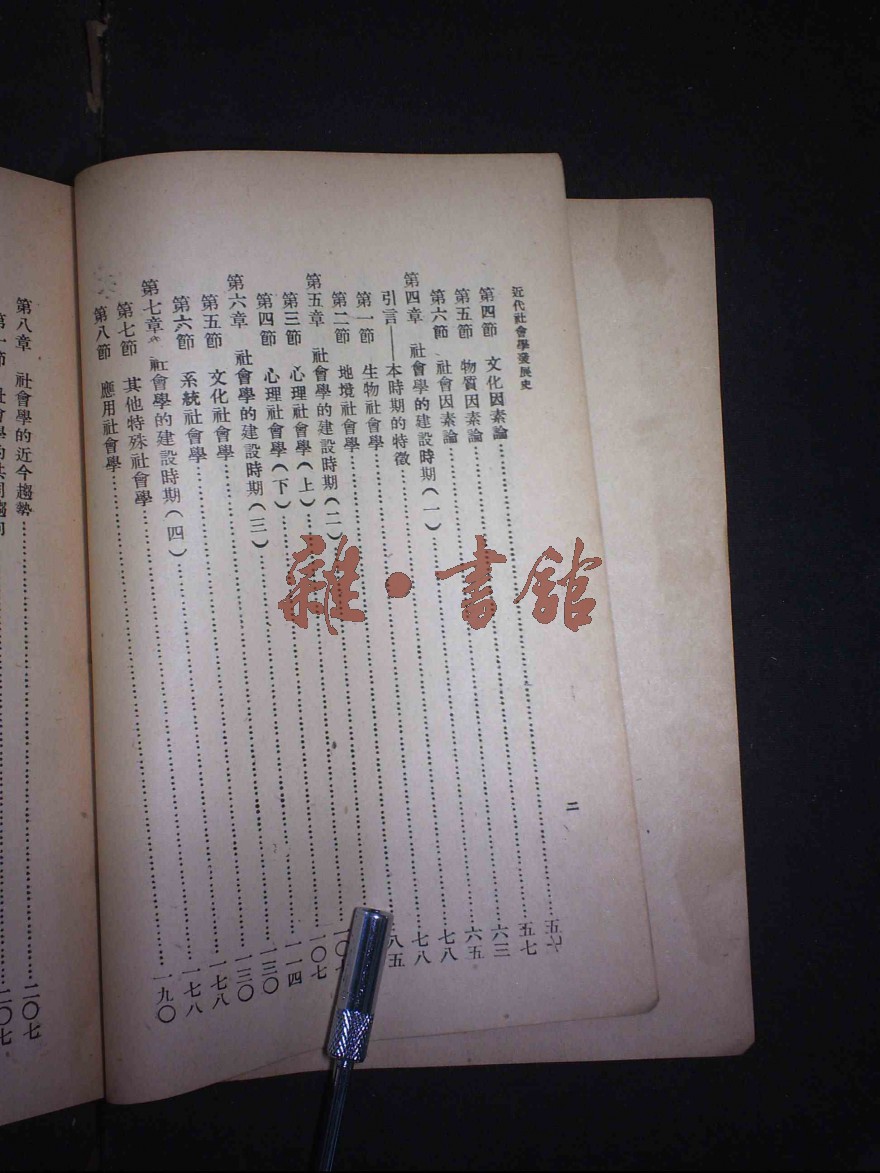 近代社會學發展史
二
第四節 文化因素論……五六
第五節 物質因素論……五七
第六節 社會因素論……六三
第四章 社會學的建設時期(一)……六五
引言——本時期的特徵……七八
第一節 生物社會學……七八
第二節 地境社會學……八五
第五章 社會學的建設時期(二)……
第三節 心理社會學(上)……一〇
第四節 心理社會學(下)……一〇七
第六章 社會學的建設時期(三)……一一四
第五節 文化社會學……一三〇
第六節 系統社會學……一三〇
第七章 社會學的建設時期(四)……一七八
第七節 其他特殊社會學……一七八
第八節 應用社會學……一九〇
第八章 社會學的近今趨勢……二〇七
第一節 社會學的共同趨向……二〇七
雜·書舘